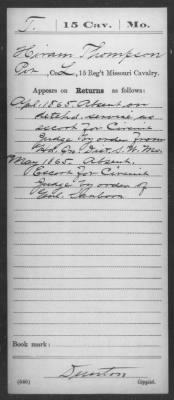 T. 15 Cav. Mo.
Hiram Thompson
Pvt, Co. L, 15 Reg't Missouri Cavalry.
Appears on Returns as follows:
Apl. 1865. Absent on
detchd. service as
escort for Circuit
Judge by order from
Hd. Qrs. Dist. S. W. Mo.
May 1865. Absent.
Escort for Circuit
Judge by order of
Genl. Sanborn
Book mark:
(646) Copyist.